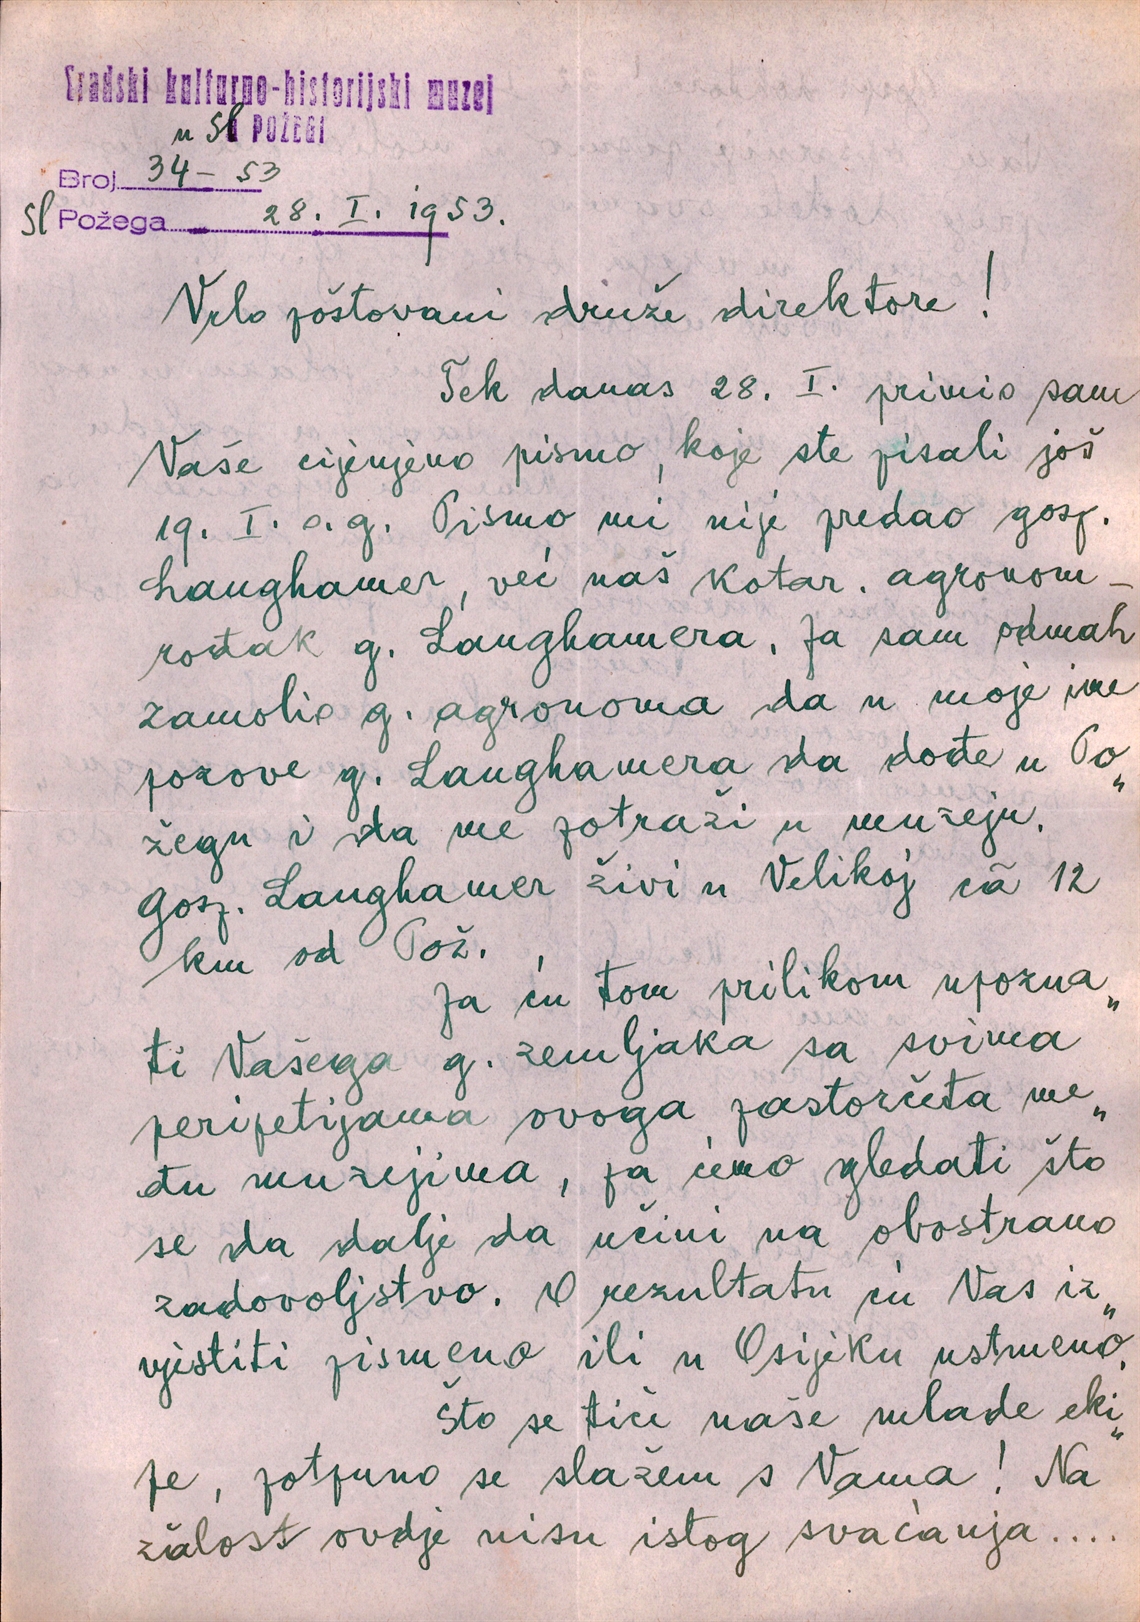 Gradski kulturno-historijski muzej
u Sl POŽEGI
Broj 34-53
Sl Požega 28. I. 1953.
Vrlo poštovani druže direktore!
Tek danas 28. I. primio sam
Vaše cijenjeno pismo, koje ste pisali još
19. I. o.g. Pismo mi nije predao gosp.
Langhamer, već naš kotar. agronom -
rođak g. Langhamera. Ja sam odmah
zamolio g. agronoma da u moje ime
pozove g. Langhamera da dođe u Po„
žegu i da me potraži u muzeju.
Gosp. Langhamer živi u Velikoj cā 12
km od Pož.
Ja ću tom prilikom upozna„
ti Vašega g. zemljaka sa svima
peripetijama ovoga pastorčeta me„
đu muzejima, pa ćemo gledati što
se da dalje da učini na obostrano
zadovoljstvo. O rezultatu ću Vas iz„
vjestiti pismeno ili u Osijeku ustmeno.
Što se tiče naše mlade eki„
pe, potpuno se slažem s Vama! Na
žalost ovdje nisu istog svaćanja....